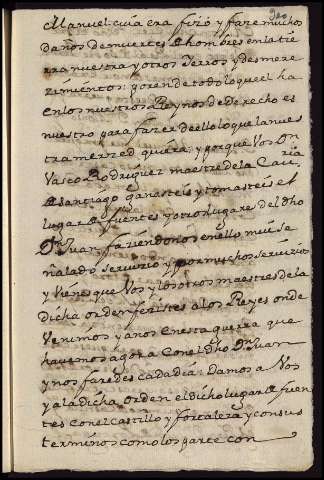 Manuel cuia era fizo y faze muchos
daños de muertes de hombres en la tie
rra nuestra y otros Yerros y desmere
zimientos: porende todo lo que el ha
en los nuestros Reynos de derecho es
nuestro para fazer de ello lo que la nues
tra merzed quiera: y porque Vos Dn
Vasco Rodriguez maestre de la Caua
ria
de Santiago ganasteis y tomasteis el
lugar de fuentes y otro lugares del dho
Dn Juan faziendonos en ello mui se
ñalado servizio y por muchos servizios
y vienes que Vos y los otros maestres de la
dicha orden fezistes a los Reyes onde
Venimos y a nos en esta guerra que
havemos agora con el dho Dn Juan
y nos faredes cada dia: Damos a Vos
y a la dicha orden el dicho lugar de fuen
tes con el castillo y fortaleza y con sus
terminos como los parte con